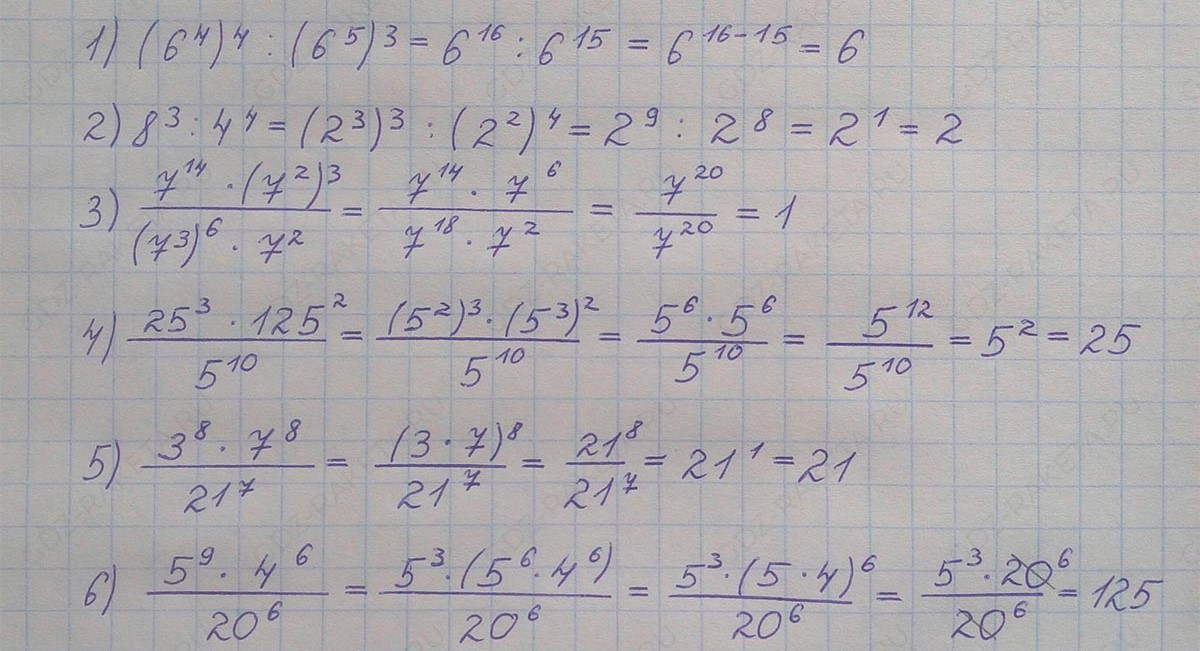 1) (6⁴)⁴ : (6⁵)³ = 6¹⁶ : 6¹⁵ = 6¹⁶⁻¹⁵ = 6
2) 8³ : 4⁴ = (2³)³ : (2²)⁴ = 2⁹ : 2⁸ = 2¹ = 2
3) (7¹⁴ · (7²)³)/((7³)⁶ · 7²) = (7¹⁴ · 7⁶)/(7¹⁸ · 7²) = 7²⁰/7²⁰ = 1
4) (25³ · 125²)/5¹⁰ = ((5²)³ · (5³)²)/5¹⁰ = (5⁶ · 5⁶)/5¹⁰ = 5¹²/5¹⁰ = 5² = 25
5) (3⁸ · 7⁸)/21⁷ = (3 · 7)⁸/21⁷ = 21⁸/21⁷ = 21¹ = 21
6) (5⁹ · 4⁶)/20⁶ = (5³ · (5⁶ · 4⁶))/20⁶ = (5³ · (5 · 4)⁶)/20⁶ = (5³ · 20⁶)/20⁶ = 125